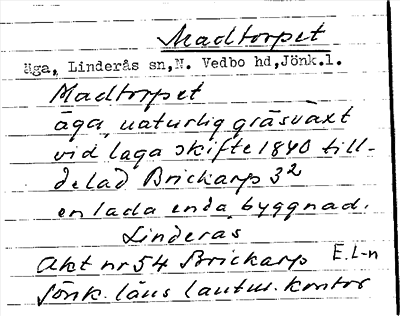 Madtorpet
äga, Linderås sn, N. Vedbo hd, Jönk.l.
Madtorpet
äga, naturlig gräsväxt
vid laga skifte 1840 till-
delad Brickarp 3²
en lada enda byggnad.
Linderås
Akt nr 54 Brickarp E.L-n
Jönk. läns lantm. kontor